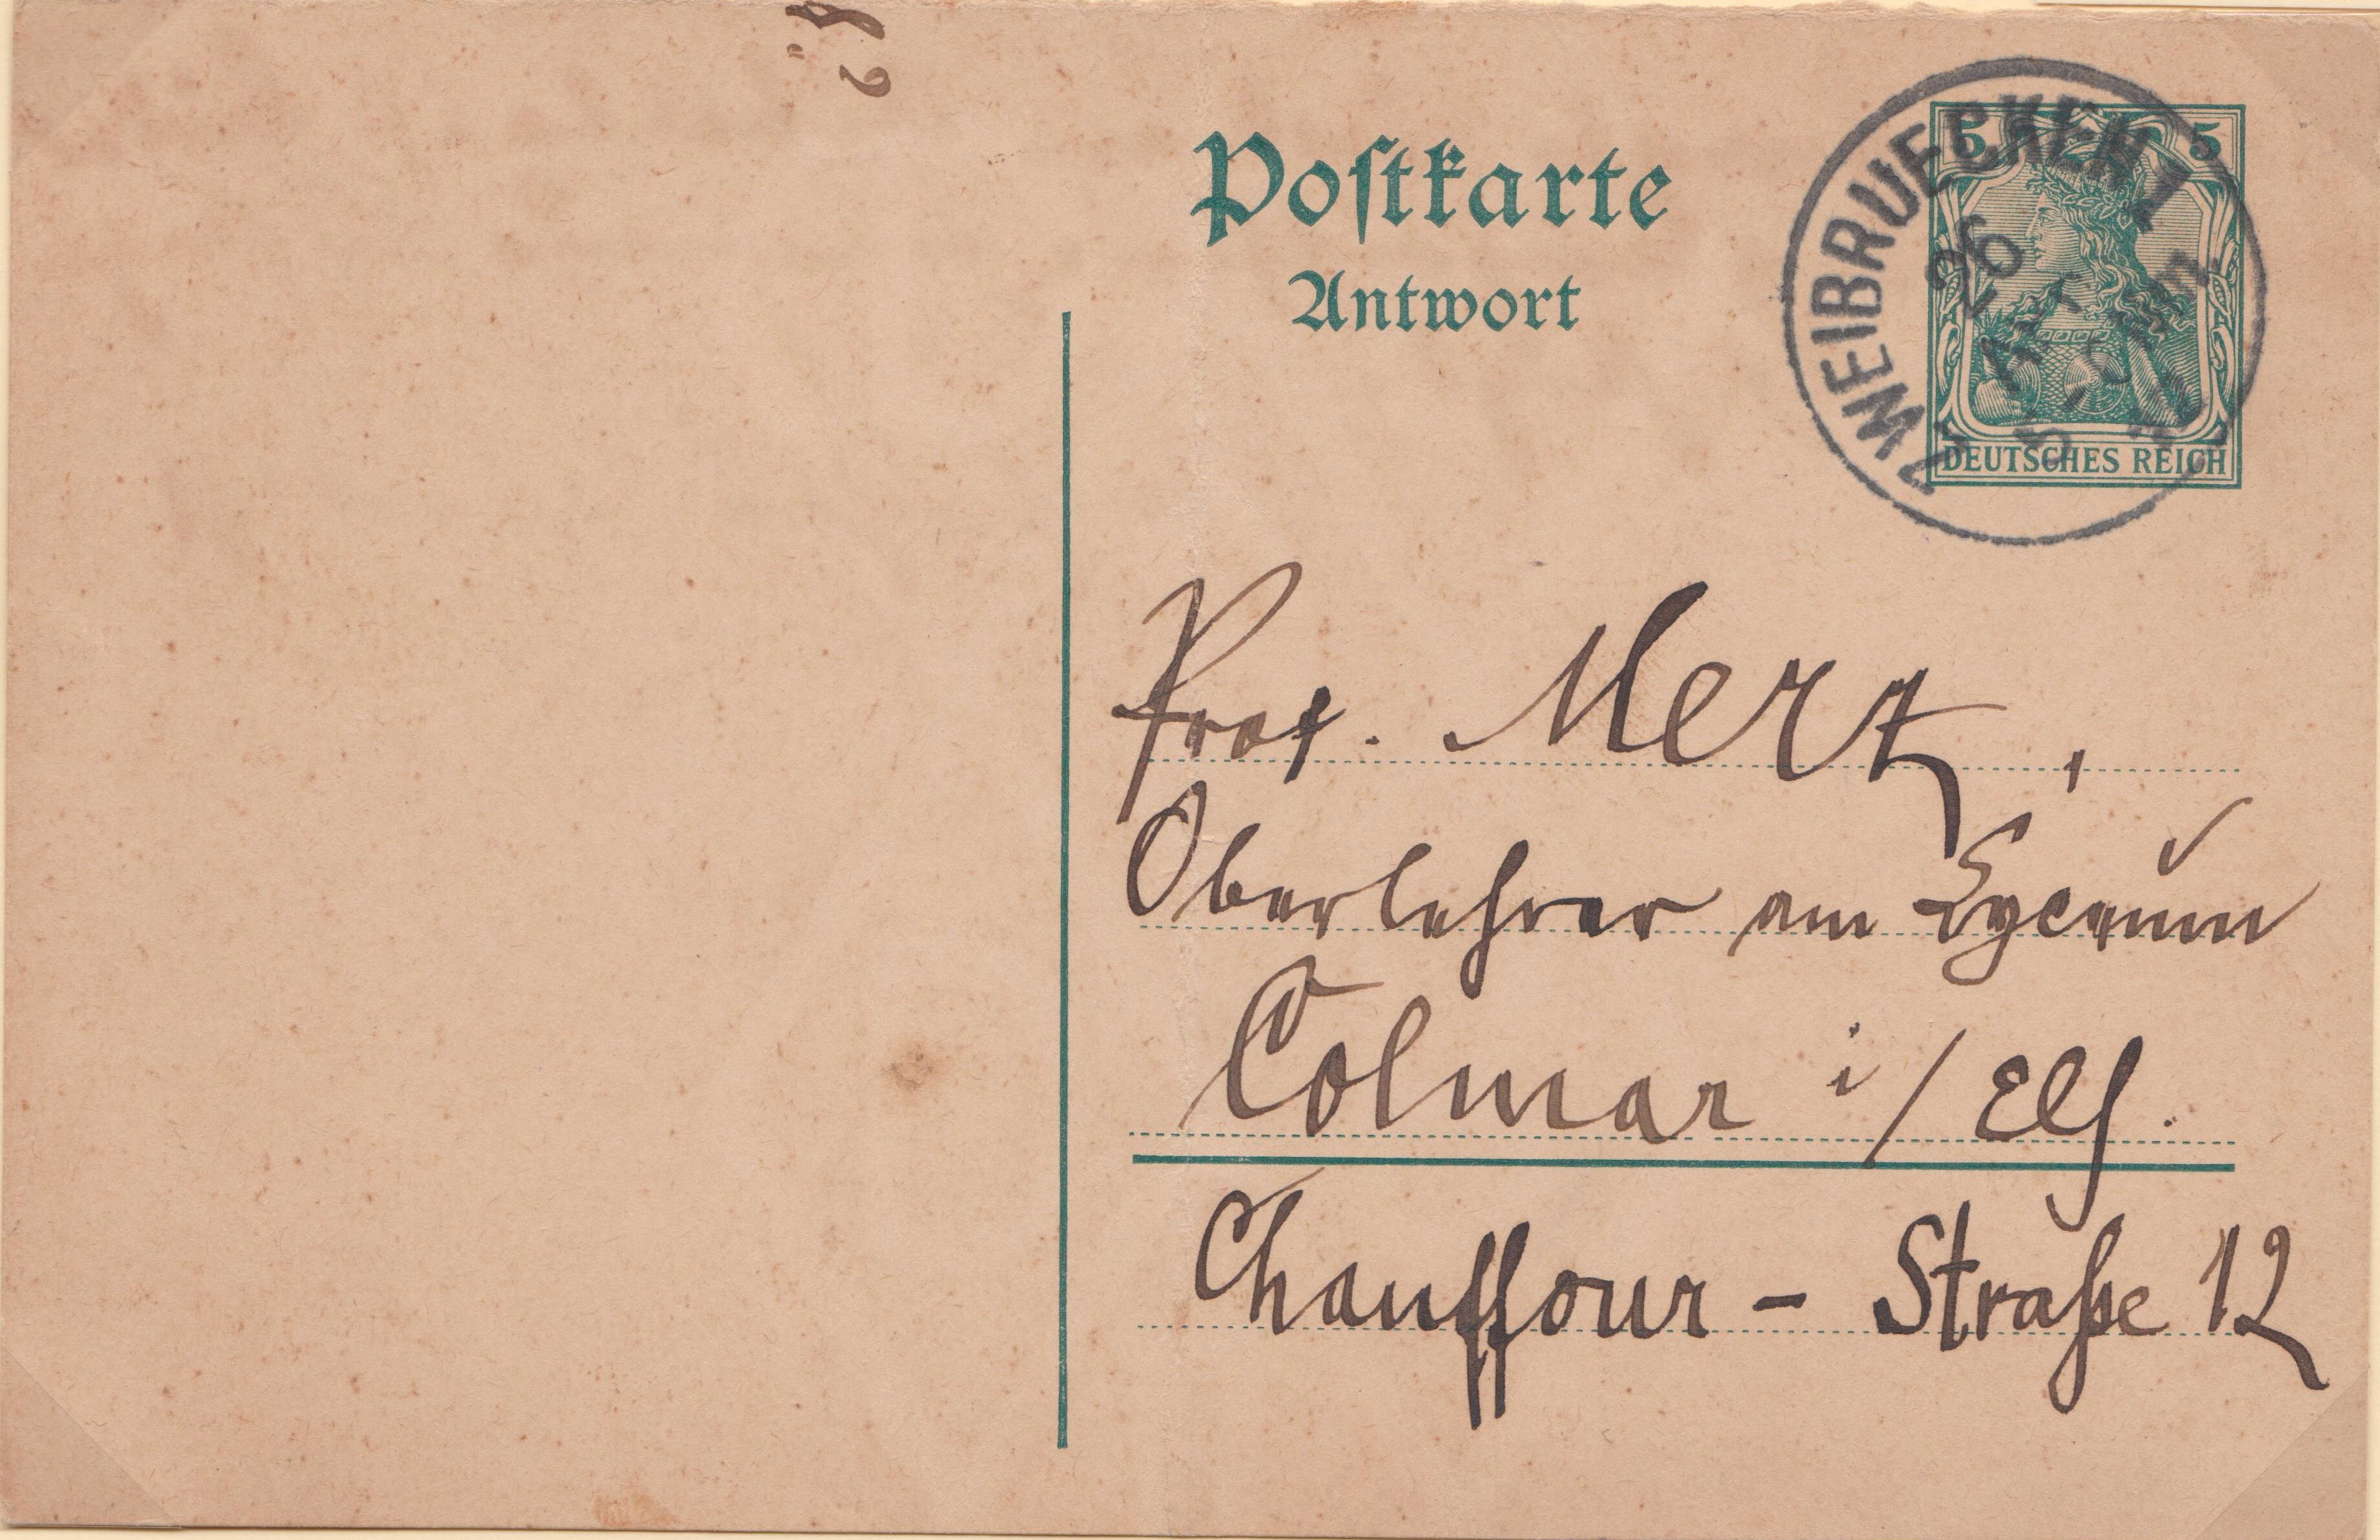 Postkarte
Antwort
5 5
DEUTSCHES REICH
ZWEIBRUECKEN 1
26
Prof. Merz,
Oberlehrer am Lyceum
Colmar i/Els.
Chauffour - Straße 12